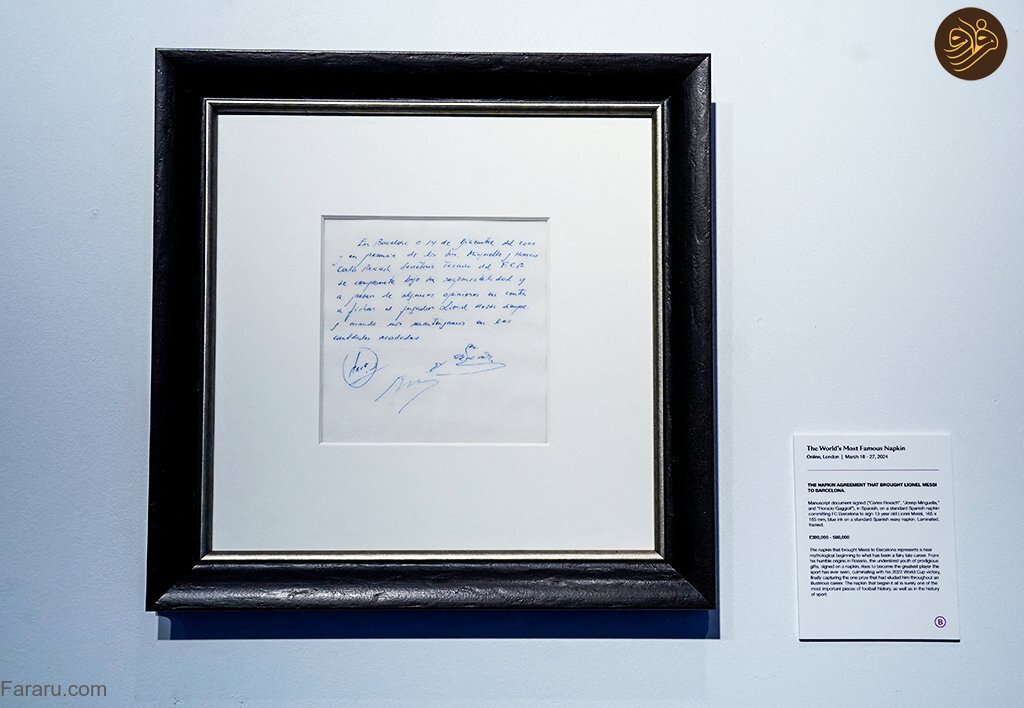 En Barcelona a 14 de diciembre del 2000
y en presencia de los Srs. Minguella y Horacio
Carlos Rexach Secretario Tecnico del F.C.B
se compromete bajo su responsabilidad y
a pesar de algunas opiniones en contra
a fichar al jugador Lionel Messi siempre
y cuando nos mantengamos en las
cantidades acordadas.
The World's Most Famous Napkin
Online, London | March 18 - 27, 2024
THE NAPKIN AGREEMENT THAT BROUGHT LIONEL MESSI
TO BARCELONA.
Manuscript document signed ("Carles Rexach", "Josep Minguella,"
and "Horacio Gaggioli"), in Spanish, on a standard Spanish napkin
committing FC Barcelona to sign 13-year old Lionel Messi, 165 x
165 mm, blue ink on a standard Spanish waxy napkin. Laminated,
framed.
£300,000 - 500,000
The napkin that brought Messi to Barcelona represents a near
mythological beginning to what has been a fairy tale career. From
his humble origins in Rosario, the undersized youth of prodigious
gifts, signed on a napkin, rises to become the greatest player the
sport has ever seen, culminating with his 2022 World Cup victory,
finally capturing the one prize that had eluded him throughout an
illustrious career. The napkin that began it all is surely one of the
most important pieces of football history, as well as in the history
of sport.
B
فرارو
Fararu.com